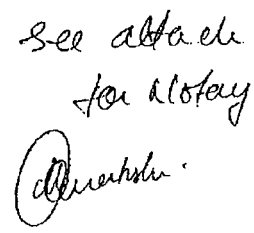 See attach
for Notary